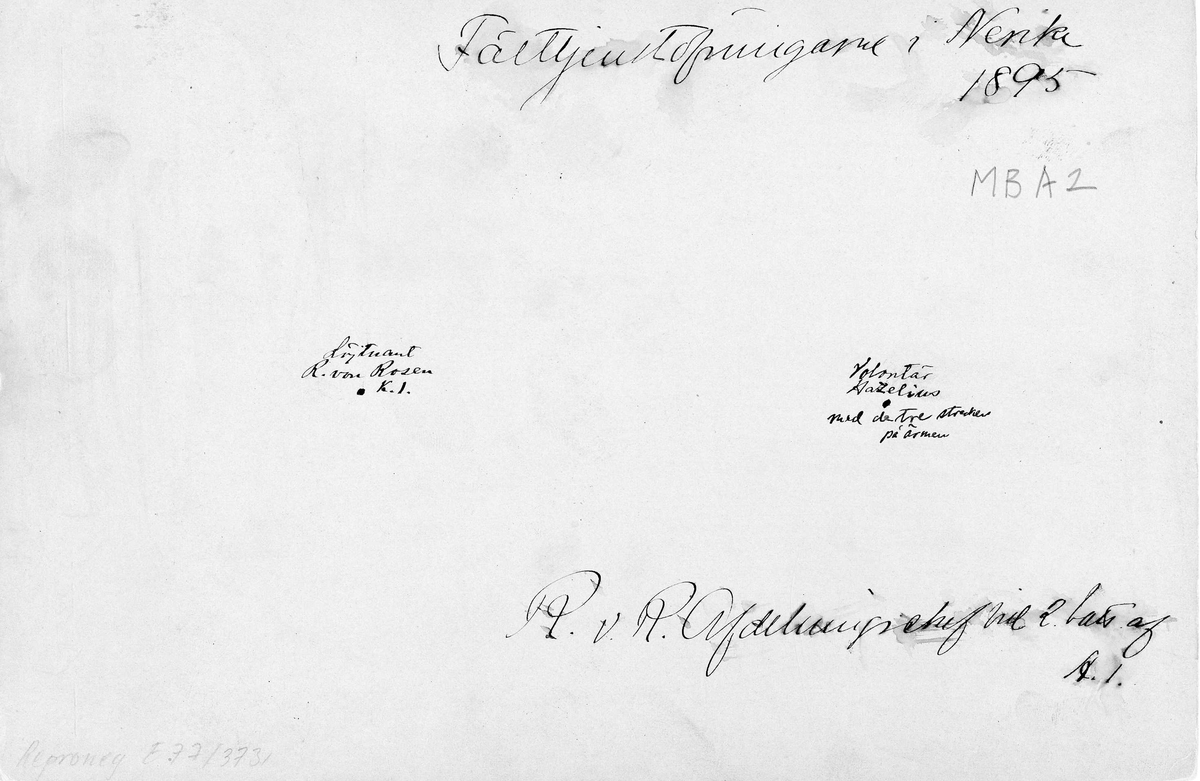 Fälttjenstöfningarne i Nerike
1895
MBA2
Löjtnant
R. von Rosen
K. 1.
Volontär
Hazelius
med de tre strecken
på ärmen
R. v. R. Afdelningschef vid 2. batt. af
A. 1.
Reproneg E 77/373